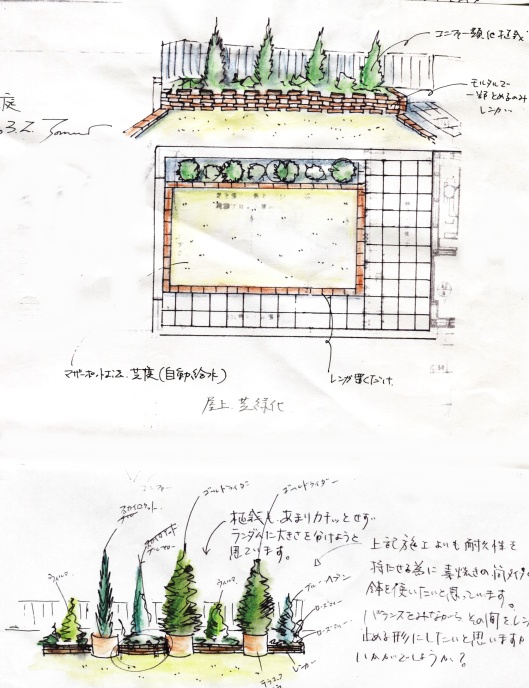 コニファー類 植栽
庭
モルタルで
一部とめるのみ
レンガ
マザーポット工法、芝庭(自動給水)
レンガ置くだけ
屋上 芝緑化
コニファー
スカイロケット
ゴールドライダー
ゴールドライダー
植栽も、あまりカチッとせず
ランダムに大きさを分けようと
思ています。
ウィルマ
ウィルマ
ブルーヘブン
レンガー
上記施工よりも耐久性を
持たせる為に素焼きの筒タイプの
鉢を使いたいと思っています。
バランスをみながらその間をレンガ
止める形にしたいと思いますが
いかがでしょうか?